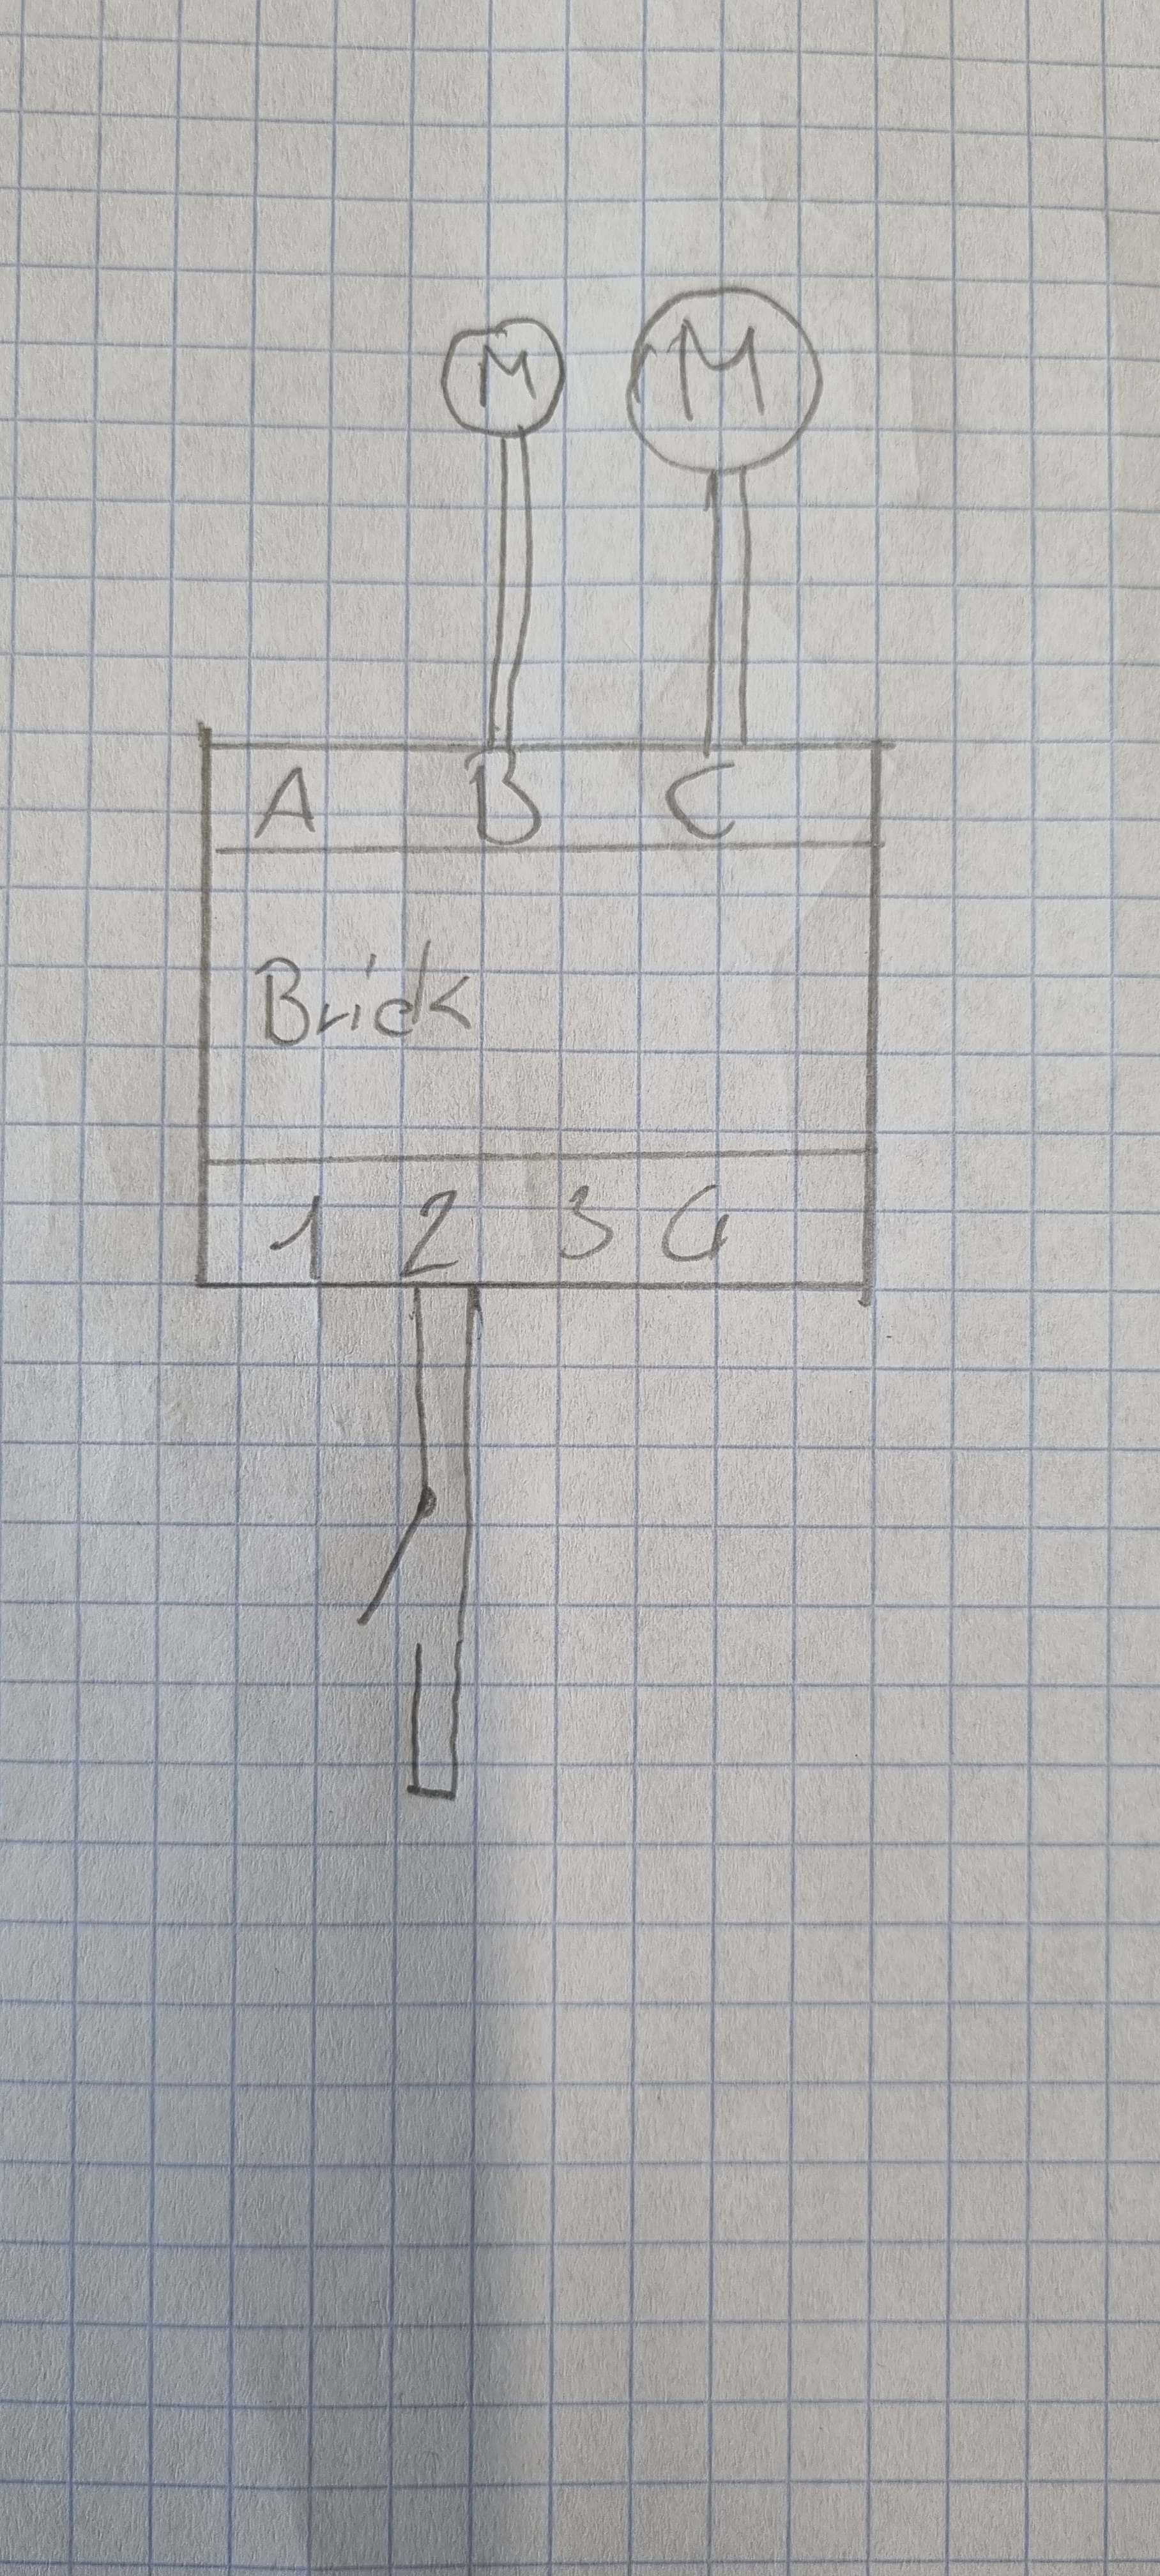 M M
A B C
Brick
1 2 3 4